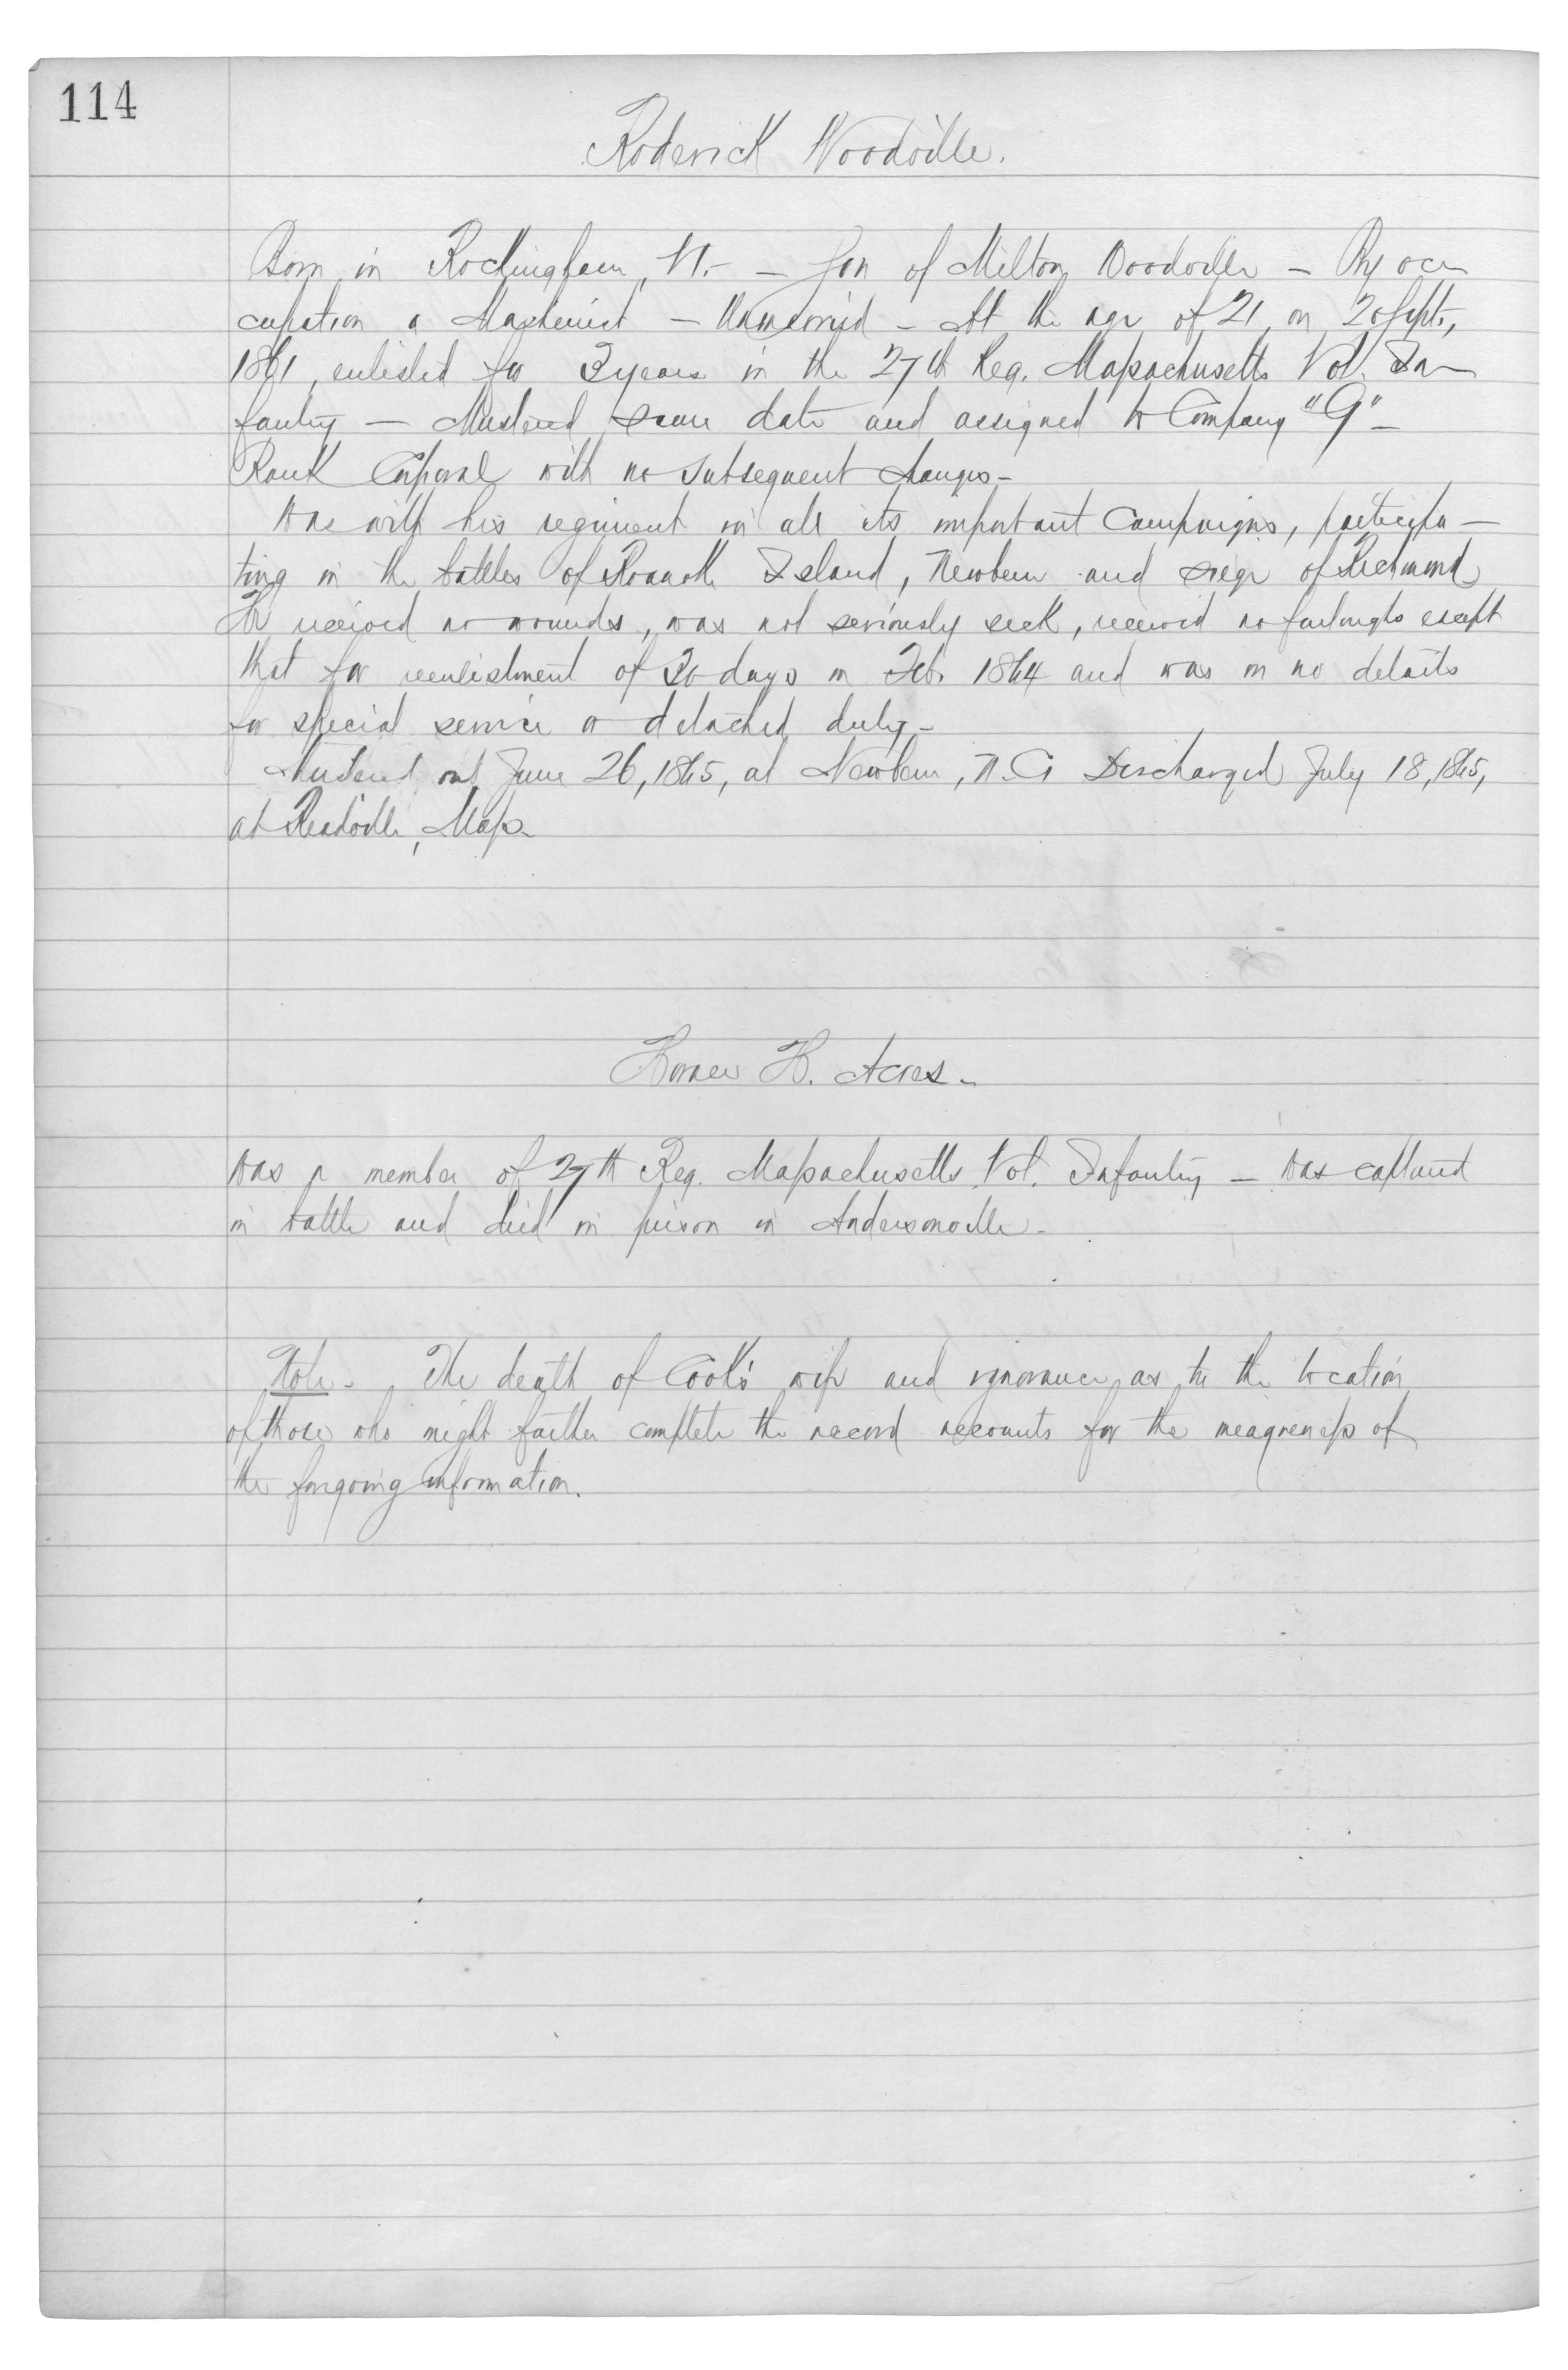 114
Roderick Woodville.
Born in Rockingham, Vt. - Son of Milton Woodville - By oc-
cupation a Machinist - Unmarried - At the age of 21, on 20 Sept.,
1861, enlisted for 3 years in the 27th Reg. Massachusetts Vol. In-
fantry - Mustered same date and assigned to Company "G" -
Rank Corporal with no subsequent changes -
Was with his regiment in all its important Campaigns, participa-
ting in the battles of Roanoke Island, Newbern and siege of Richmond
He received no wounds, was not seriously sick, received no furloughs except
that for reenlistment of 30 days in Feb. 1864 and was on no details
for special service or detached duty -
Mustered out June 26, 1865, at Newbern, N.C. Discharged July 18, 1865,
at Readville, Mass.
H. Acres -
Was a member of 27th Reg. Massachusetts Vol. Infantry - Was captured
in battle and died in prison in Andersonville -
Note - The death of Cook's wife and ignorance as to the location
of those who might further complete the record accounts for the meagreness of
the foregoing information.